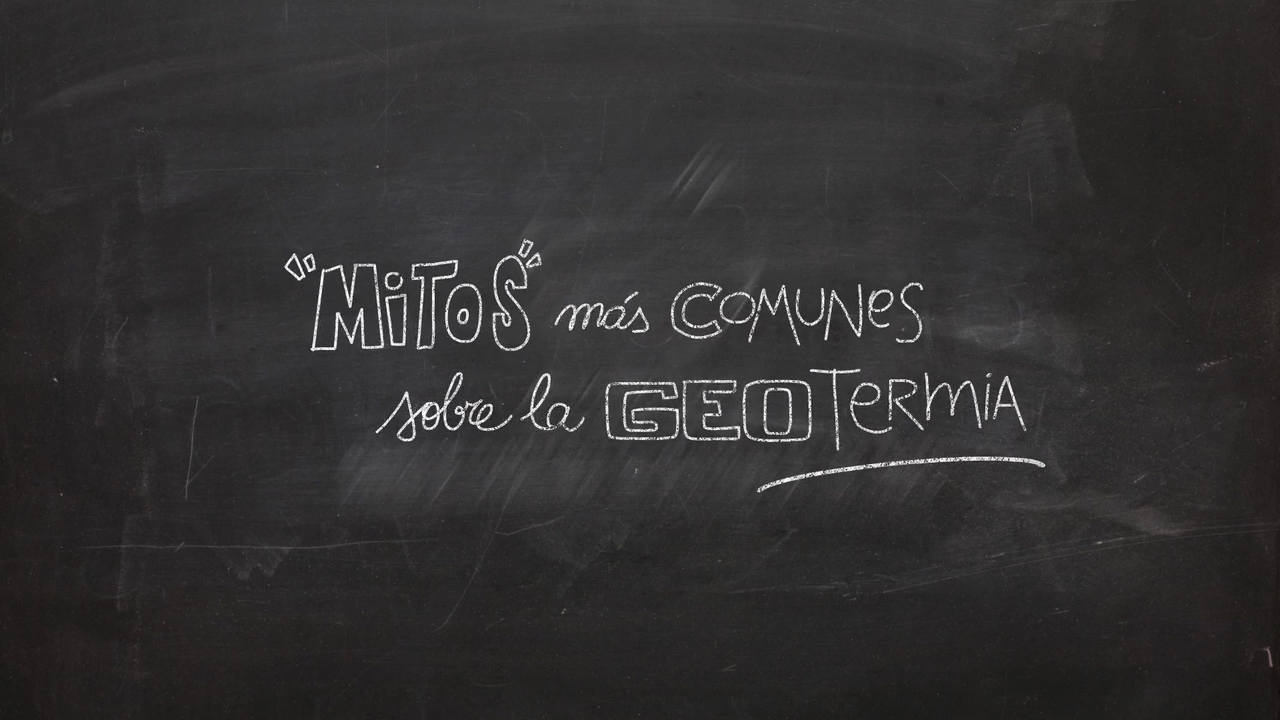 "MiTOS" más COMUNES
sobre la GEOTeRMiA